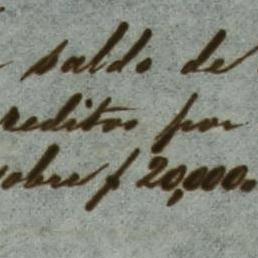 saldo de
reditos por
sobre $ 20,000.